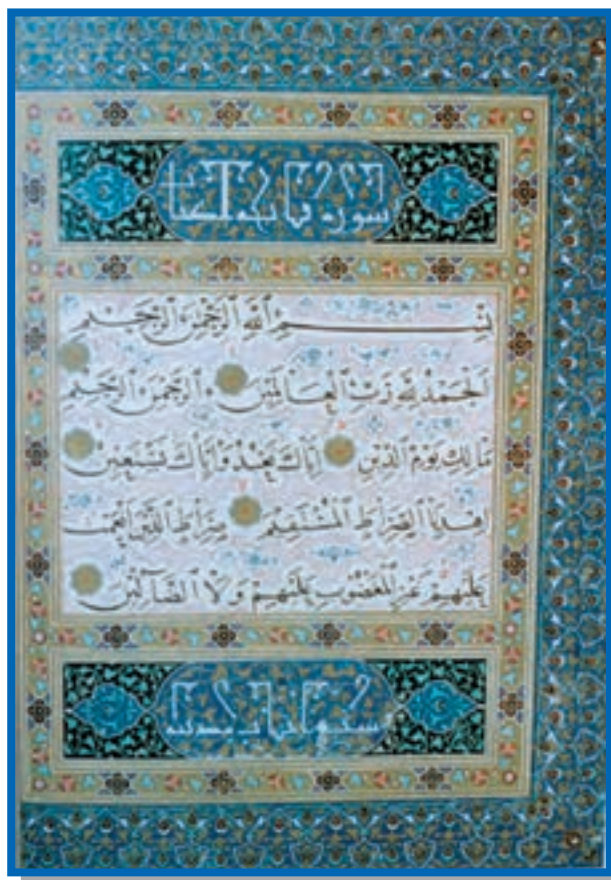 سورة فاتحة الكتاب
بِسْمِ ٱللَّهِ ٱلرَّحْمَٰنِ ٱلرَّحِيمِ
ٱلْحَمْدُ لِلَّهِ رَبِّ ٱلْعَالَمِينَ ٱلرَّحْمَٰنِ ٱلرَّحِيمِ
مَالِكِ يَوْمِ ٱلدِّينِ إِيَّاكَ نَعْبُدُ وَإِيَّاكَ نَسْتَعِينُ
اِهْدِنَا ٱلصِّرَاطَ ٱلْمُسْتَقِيمَ صِرَاطَ ٱلَّذِينَ أَنْعَمْتَ
عَلَيْهِمْ غَيْرِ ٱلْمَغْضُوبِ عَلَيْهِمْ وَلَا ٱلضَّآلِّينَ